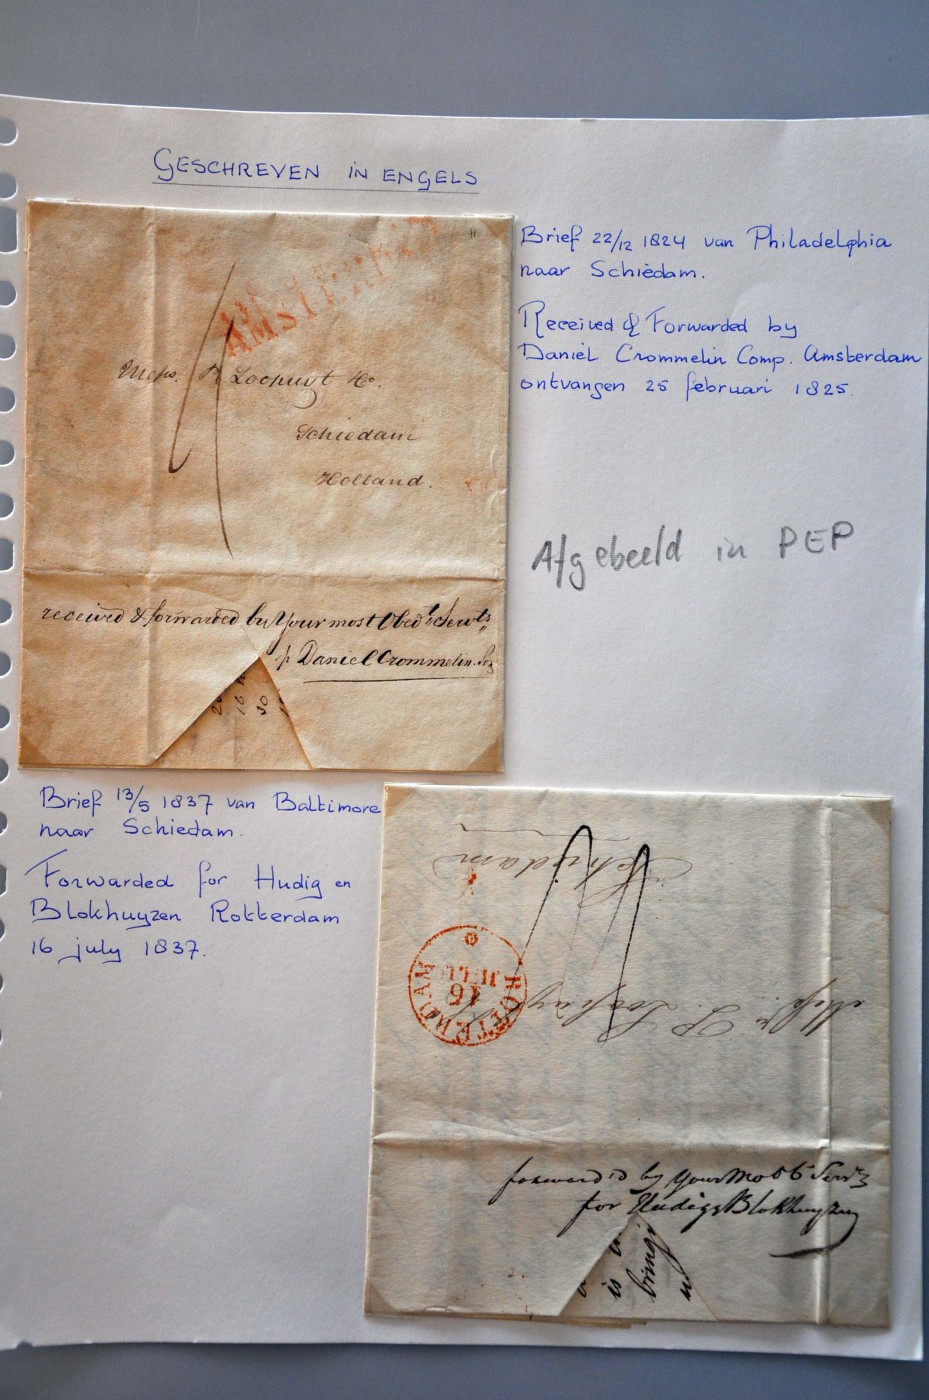 GESCHREVEN in ENGELS
Brief 22/12 1824 van Philadelphia
naar Schiedam.
Received & Forwarded by
Daniël Crommelin Comp. Amsterdam
ontvangen 25 februari 1825.
AMSTERDAM
Schiedam
Holland.
Afgebeeld in PEP
received & forwarded by Your most Obedt Servts
p Daniel Crommelin
16
30
Brief 13/5 1837 van Baltimore
naar Schiedam.
Forwarded for Hudig en
Blokhuyzen Rotterdam
16 july 1837.
Schiedam
ROTTERDAM
16
JULI
forward'd by Your Mo Ob Servts
for Hudig & Blokhuyzen
is
bring